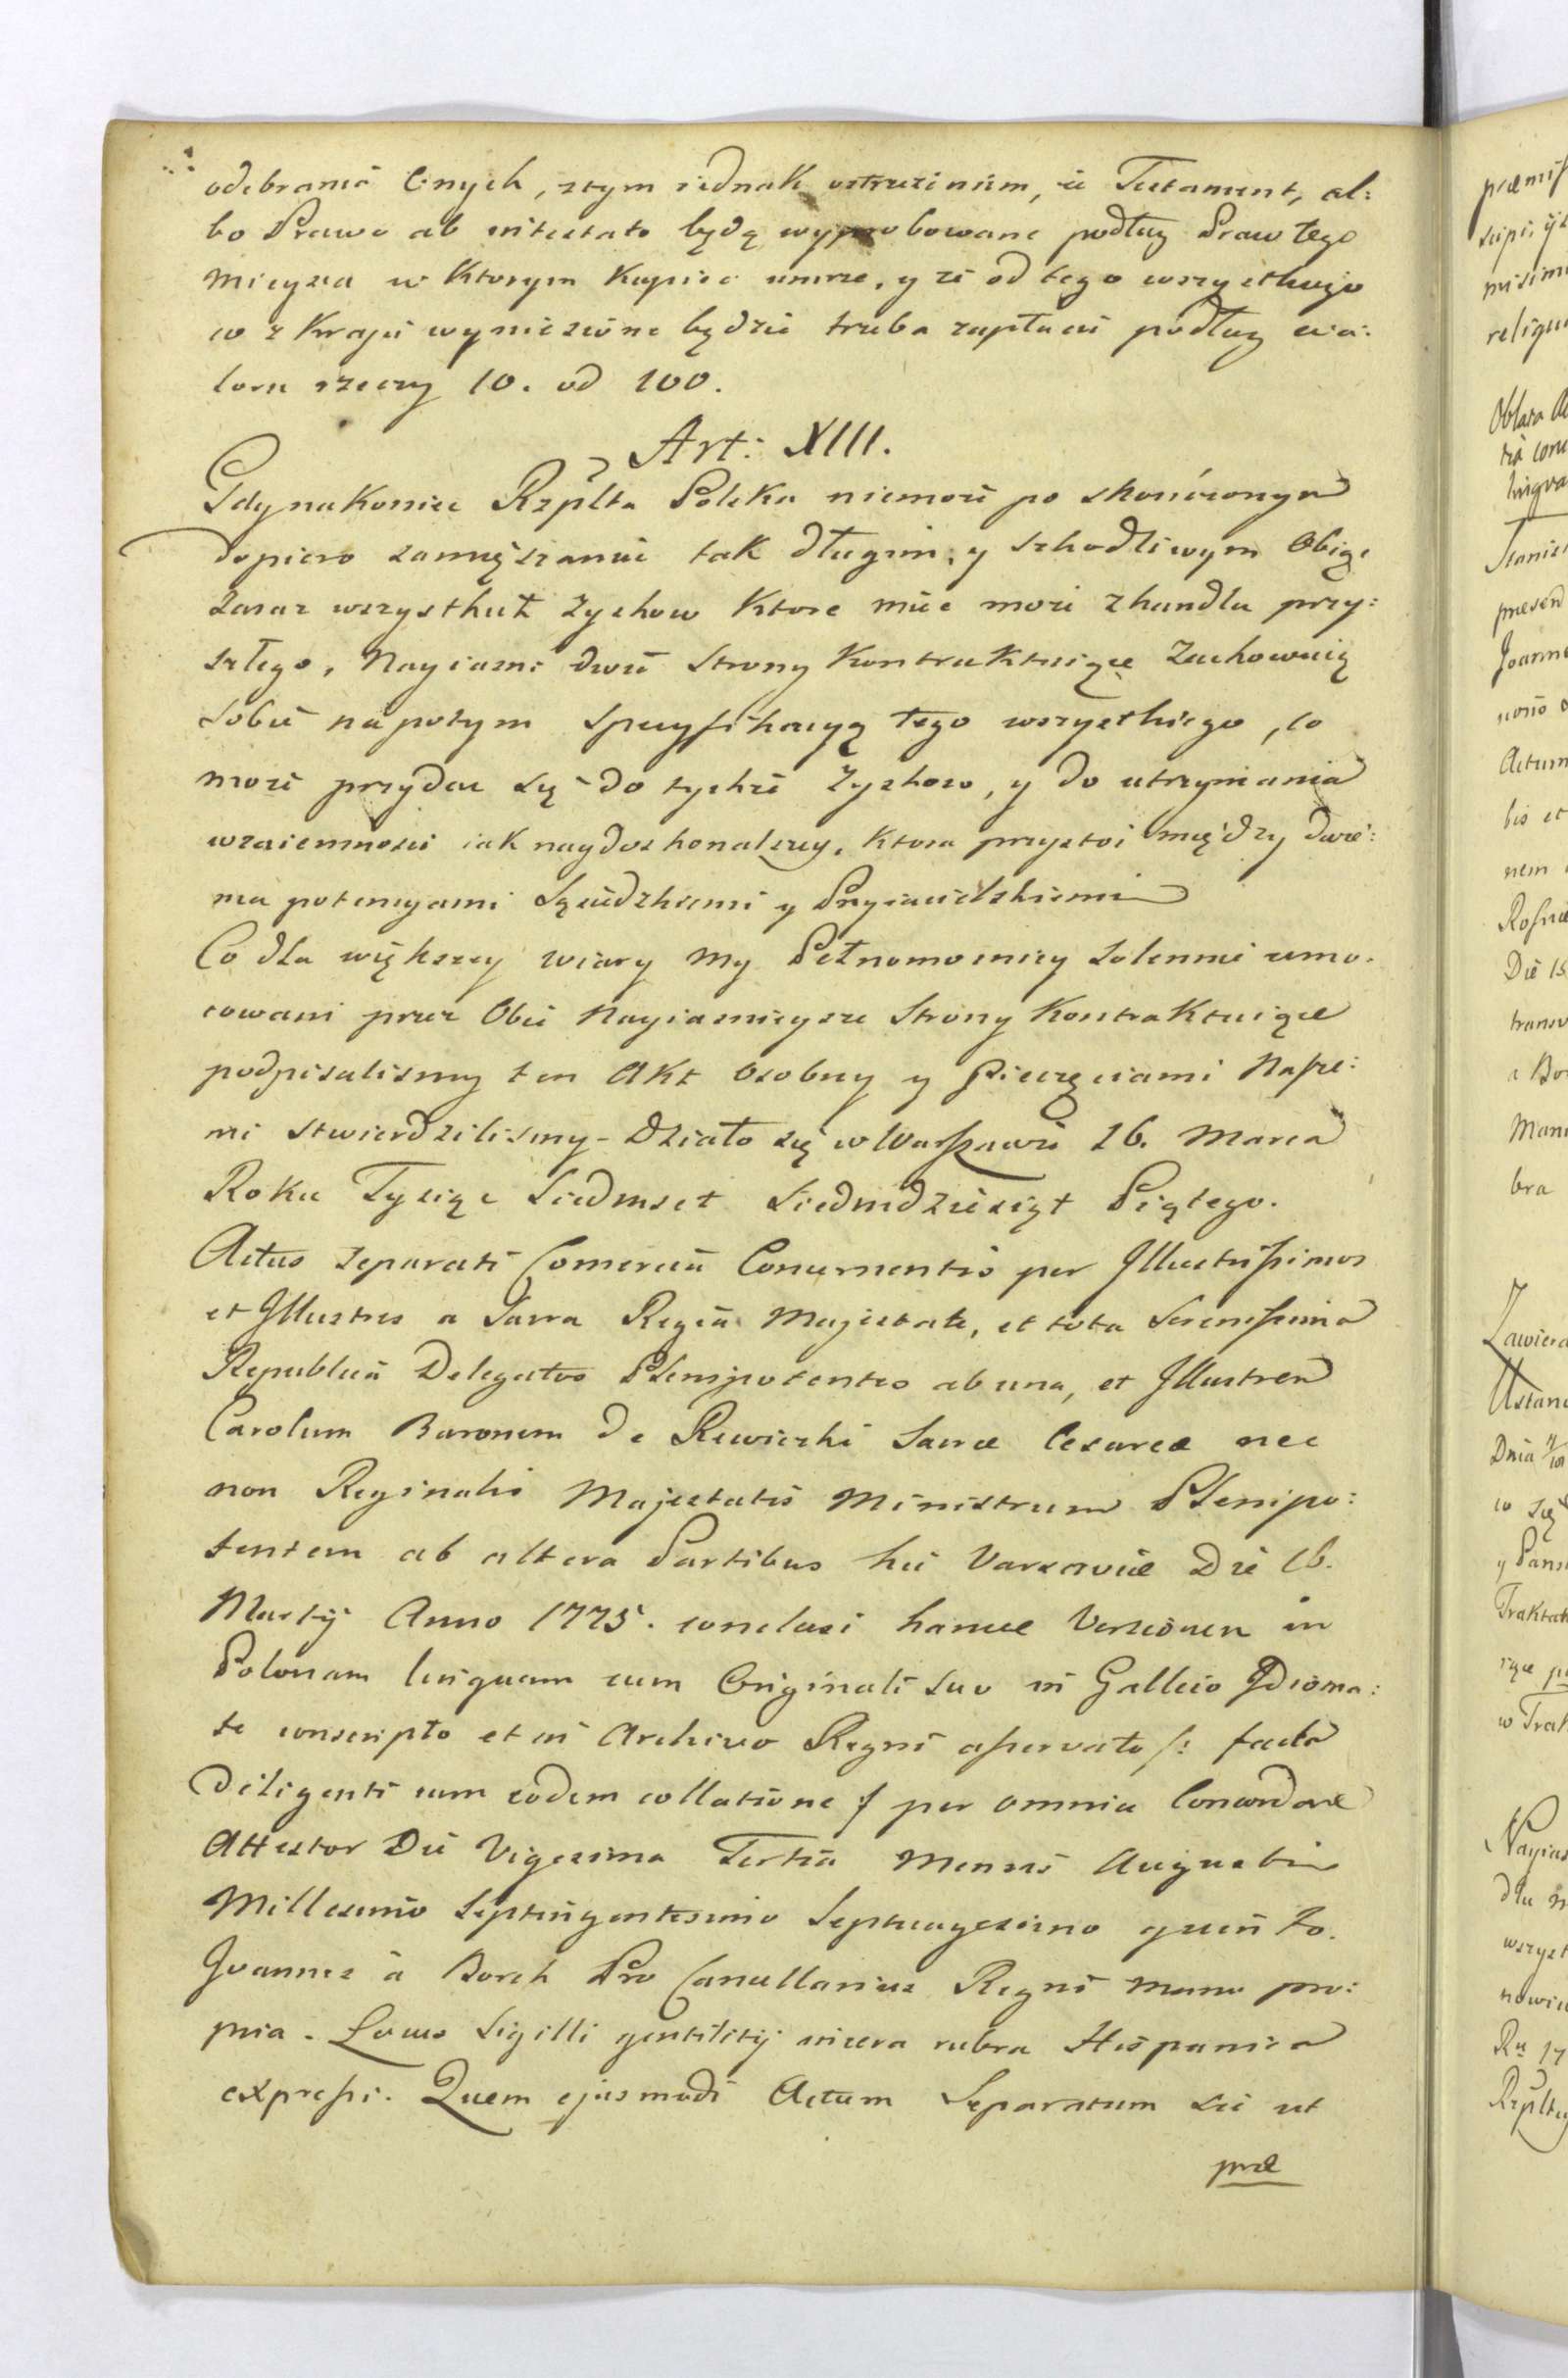 odebrania onych, ztym iednak ostrzeżeniem, iż Testament, al:
bo Prawo ab intestato będą wyprobowane podług Praw tego
mieysca w ktorym kupiec umrze, y że od tego wszystkiego
co z kraju wyniesione będzie trzeba zapłacić podług wa:
loru rzeczy 10. od 100.
Art: XIII.
Gdy nakoniec Rzplta Polska niemoże po skończonym
dopiero zamięszaniu tak długim, y szkodliwym Obiąc
zaraz wszystkich zyskow ktore mieć może z handlu przy:
szłego, Nayiaśni: dwie Strony Kontraktuiące zachowuią
sobie napotym specyfikacyą tego wszystkiego, co
może przydac się do tychże zyskow, y do utrzymania
wzaiemności iak naydoskonalszey, ktora przystoi między dwie:
ma potencyami Sąsiedzkiemi y Przyiacielskiemi
Co dla większey wiary my Pełnomocnicy solennie umo:
cowani przez Obie Nayiaśnieysze Strony Kontraktuiące
podpisalismy ten Akt osobny y Pieczęciami Nasze:
mi stwierdzilismy - Działo się w Warszawie 16. Marca
Roku Tysiąc Siedmset Siedmdziesiąt Piątego.
Actus separati Comercia Concernentis per Illustrissimos
et Illustres a Sacra Regia Majestate, et tota Serenissima
Republica Delegatos Plenipotentes ab una, et Illustrem
Carolum Baronem de Rewiczki Sacræ Cesareæ nec
non Reginalis Majestatis Ministrum Plenipo:
tentem ab altera Partibus hic Varsaviæ Die 16.
Martij Anno 1775. conclusi hancce Versionem in
Polonam linguam cum Originali suo in Gallico Idioma:
te conscripto et in Archivo Regni asservato /: facta
diligenti cum eodem collatione / per omnia Concordare
Attestor Die Vigesima Tertia Mensis Augusti
Millesimo Septingentesimo Septuagesimo quinto.
Joannes à Borch Pro Cancellarius Regni manu pro:
pria. Locus Sigilli gentilitij in cera rubra Hispanica
expressi. Quem ejusmodi Actum Separatum sic ut
præ